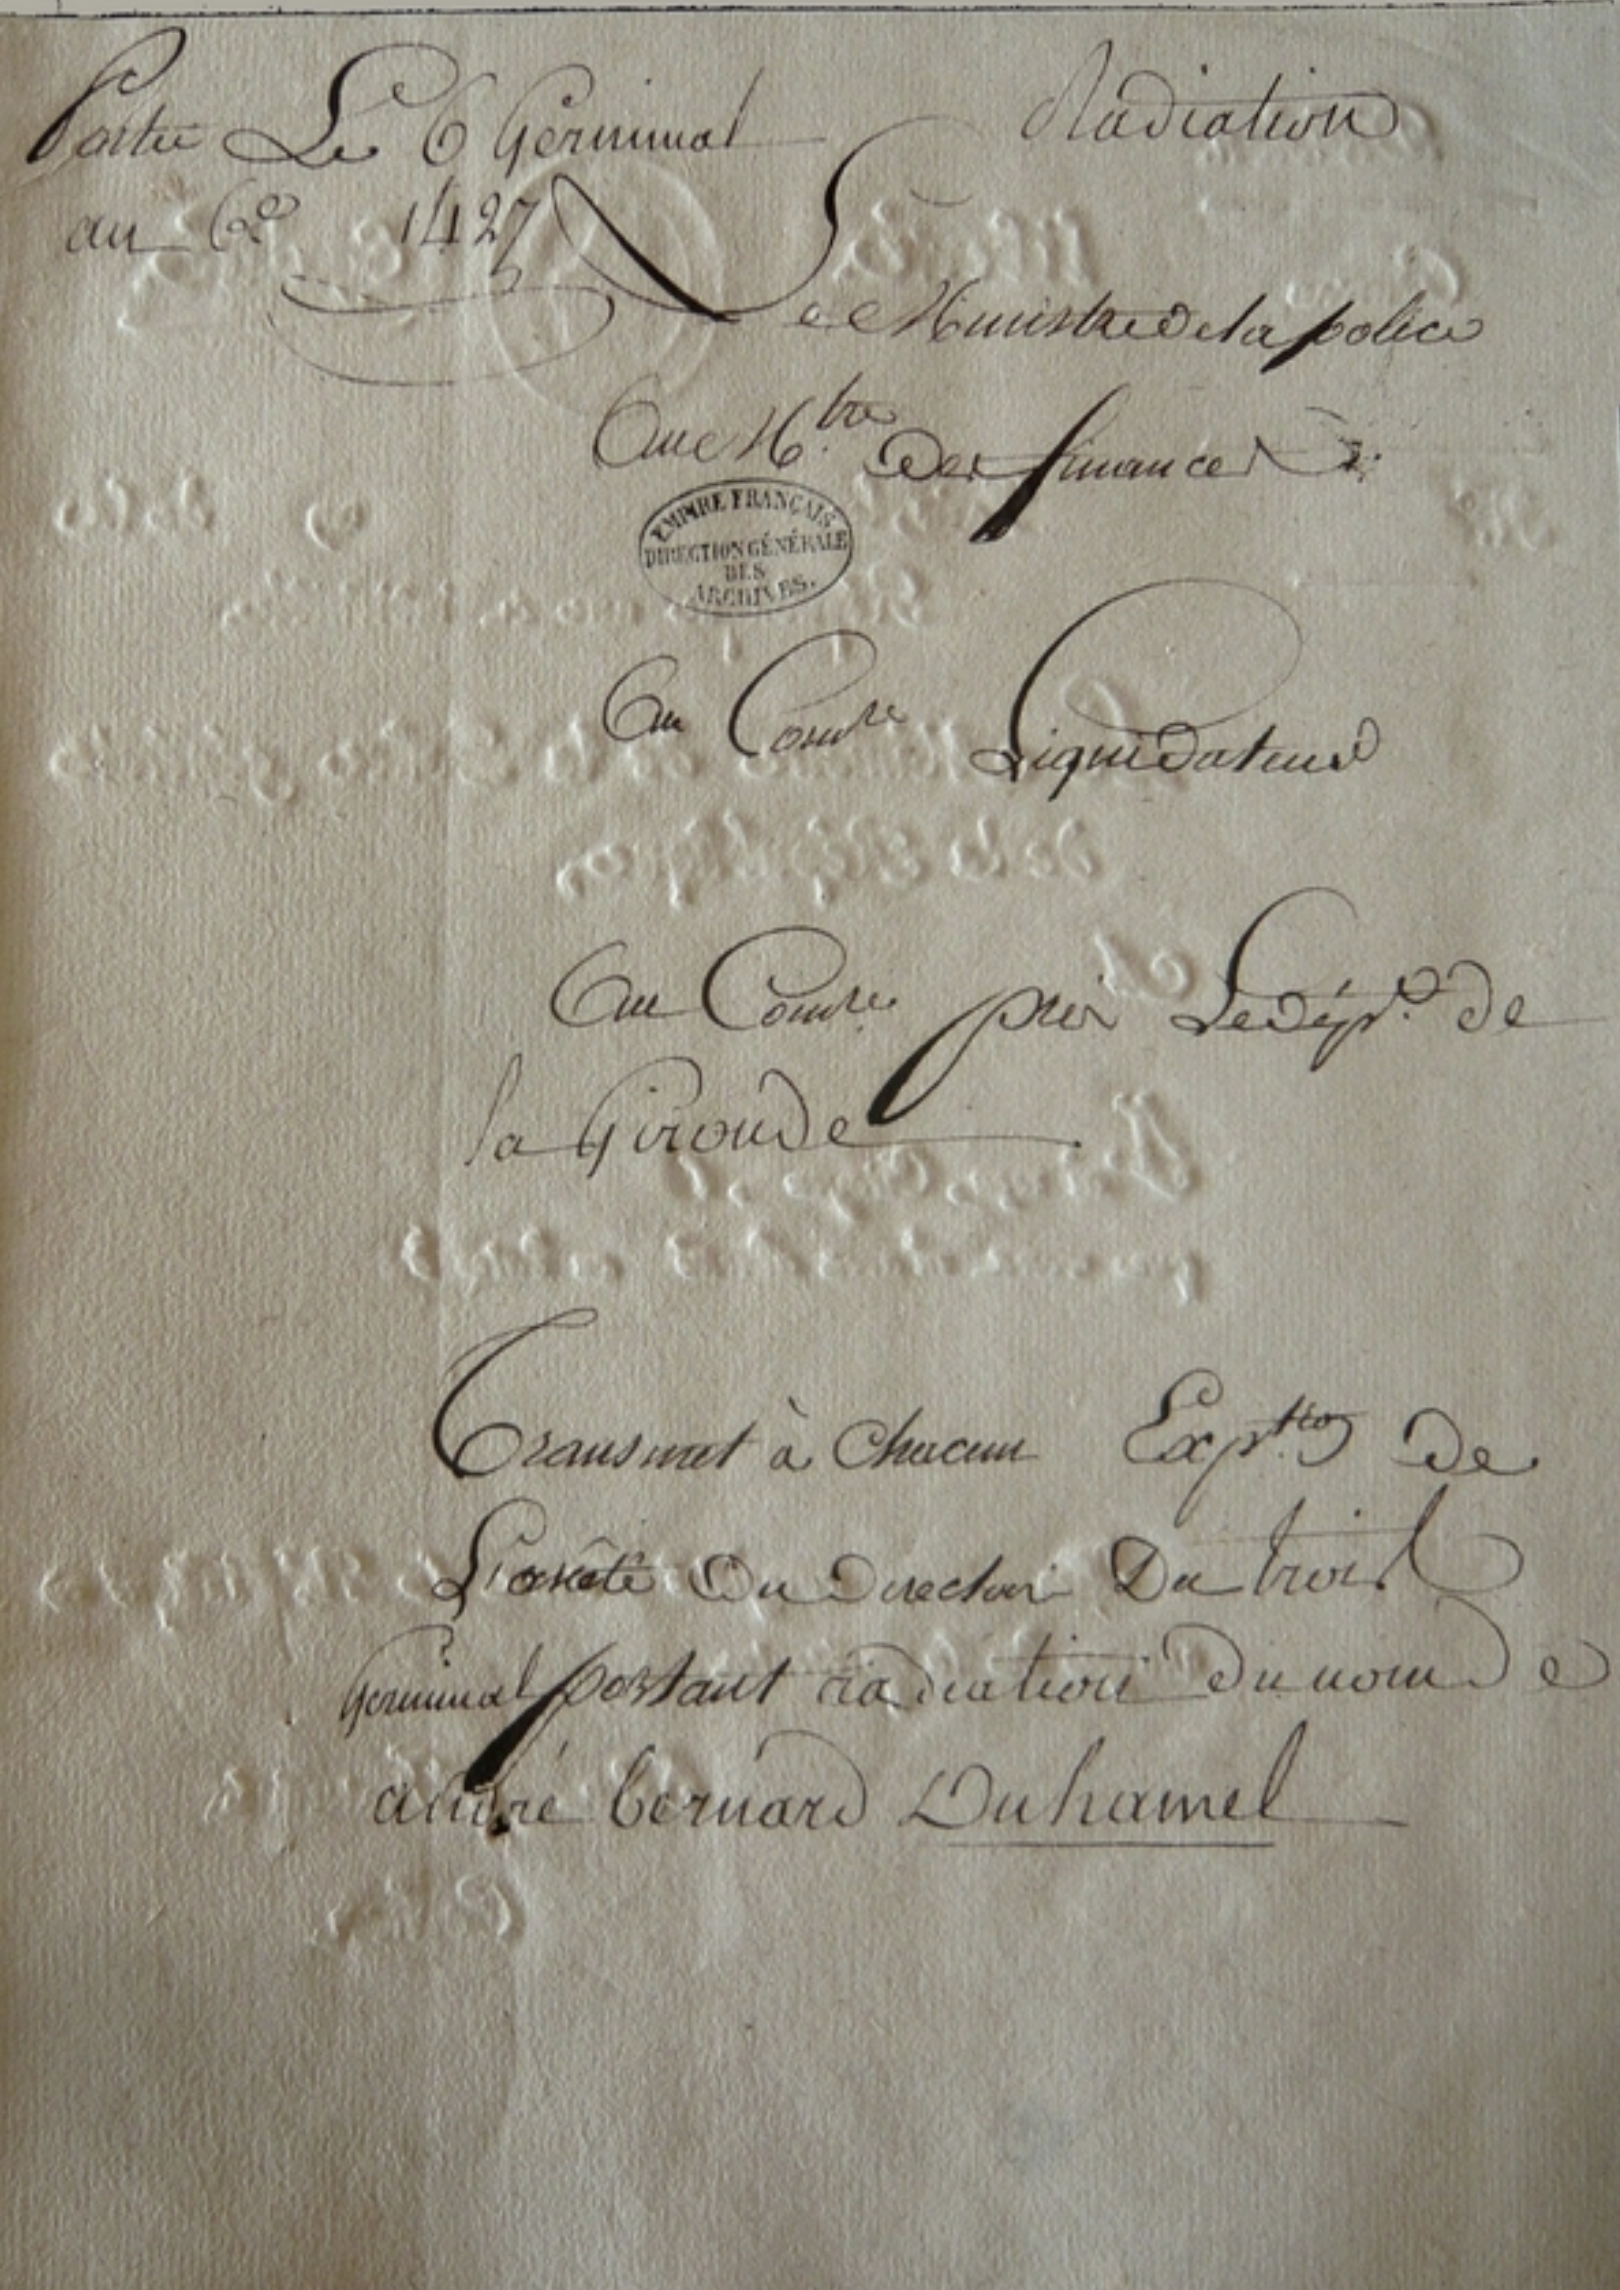 Partie Le 6 Germinal
an 6e 1427
Radiation
Le Ministre de la police
Au Mtre Des finances
EMPIRE FRANÇAIS
DIRECTION GÉNÉRALE
DES
ARCHIVES.
Au Comre Liquidateur
Au Comre près Le dépt. de
la Gironde
Transmet à Chacun Expton de
L'arrêté du Directoire Du trois
Germinal portant radiation du nom de
andré bernard Duhamel